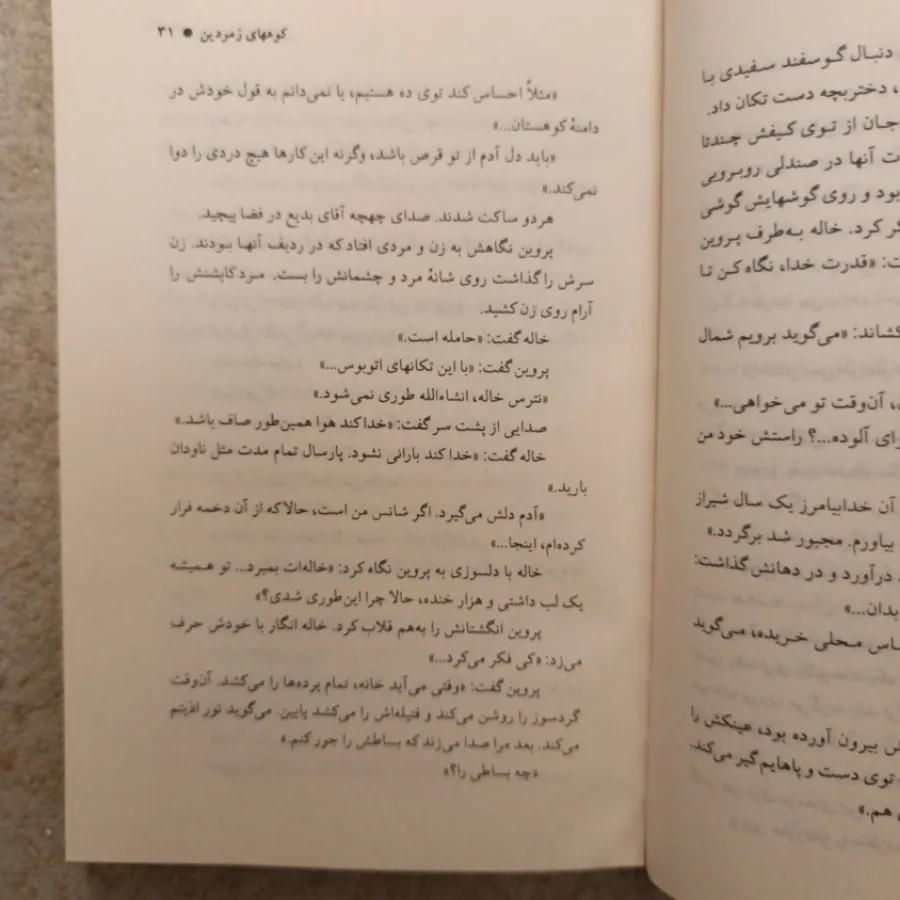 کوههای زمردین ● ۳۱
«مثلاً احساس کند توی ده هستیم، یا نمی‌دانم به قول خودش در
دامنهٔ کوهستان...»
«باید دل آدم از تو قرص باشد، وگرنه این کارها هیچ دردی را دوا
نمی‌کند.»
هر دو ساکت شدند. صدای چهچه آقای بدیع در فضا پیچید.
پروین نگاهش به زن و مردی افتاد که در ردیف آنها بودند. زن
سرش را گذاشت روی شانهٔ مرد و چشمانش را بست. مرد کاپشنش را
آرام روی زن کشید.
خاله گفت: «حامله است.»
پروین گفت: «با این تکانهای اتوبوس...»
«نترس خاله، انشاءالله طوری نمی‌شود.»
صدایی از پشت سر گفت: «خدا کند هوا همین‌طور صاف باشد.»
خاله گفت: «خدا کند بارانی نشود. پارسال تمام مدت مثل ناودان
بارید.»
«آدم دلش می‌گیرد. اگر شانس من است، حالا که از آن دخمه فرار
کرده‌ام، اینجا...»
خاله با دلسوزی به پروین نگاه کرد: «خاله‌ات بمیرد... تو همیشه
یک لب داشتی و هزار خنده، حالا چرا این‌طوری شدی؟»
پروین انگشتانش را به‌هم قلاب کرد. خاله انگار با خودش حرف
می‌زد: «کی فکر می‌کرد...»
پروین گفت: «وقتی می‌آید خانه، تمام پرده‌ها را می‌کشد. آن‌وقت
گردسوز را روشن می‌کند و فتیله‌اش را می‌کشد پایین. می‌گوید نور اذیتم
می‌کند. بعد مرا صدا می‌زند که بساطش را جور کنم.»
«چه بساطی را؟»
دنبال گوسفند سفیدی با
، دختربچه دست تکان داد.
جان از توی کیفش چندتا
ت آنها در صندلی روبرویی
بود و روی گوشهایش گوشی
گر کرد. خاله به‌طرف پروین
ت: «قدرت خدا، نگاه کن تا
کشاند: «می‌گوید برویم شمال
، آن‌وقت تو می‌خواهی...»
وای آلوده...؟ راستش خود من
آن خدابیامرز یک سال شیراز
بیاورم. مجبور شد برگردد.»
درآورد و در دهانش گذاشت:
بدان...»
اس محلی خریده، می‌گوید
ش بیرون آورده بود، عینکش را
توی دست و پاهایم گیر می‌کند.
هم.»